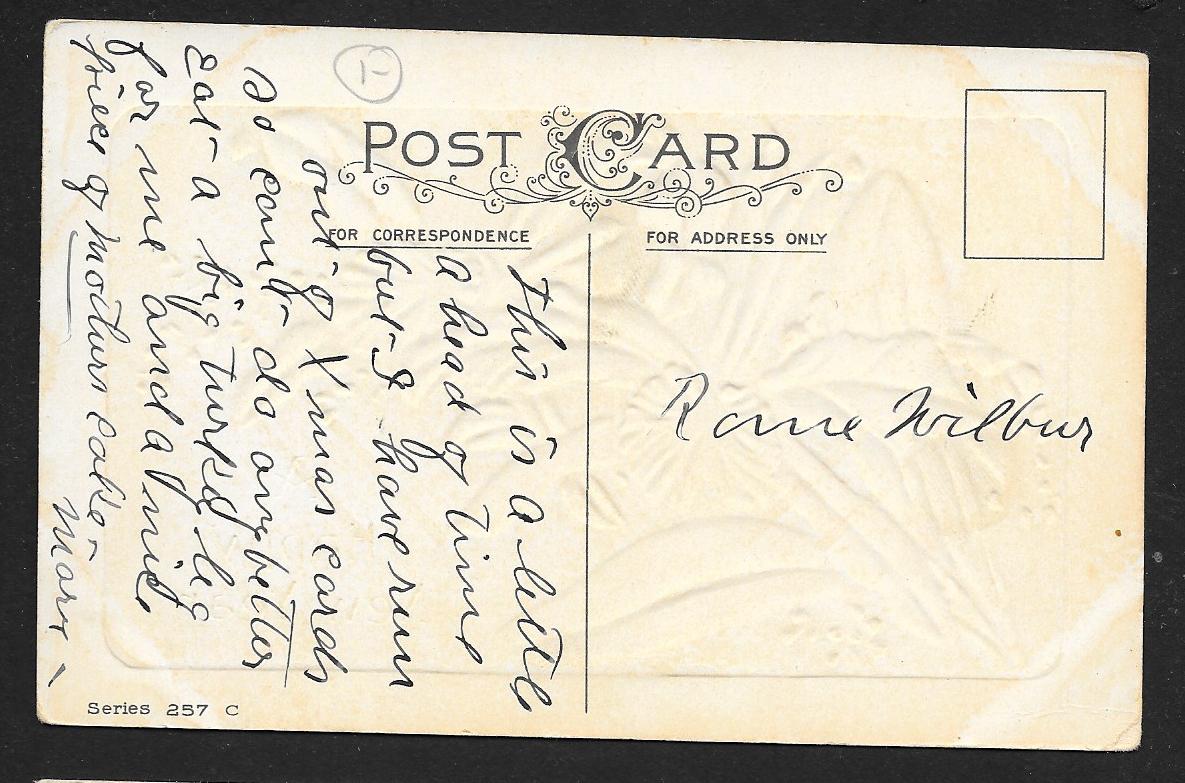 POST CARD
FOR CORRESPONDENCE
FOR ADDRESS ONLY
This is a little
a head of time
but I have run
out of Xmas cards
so cant do any better
Eat a big turkey leg
for me and a nice
piece of mothers cake
Mary
Rome Wilbur
Series 257 C
1